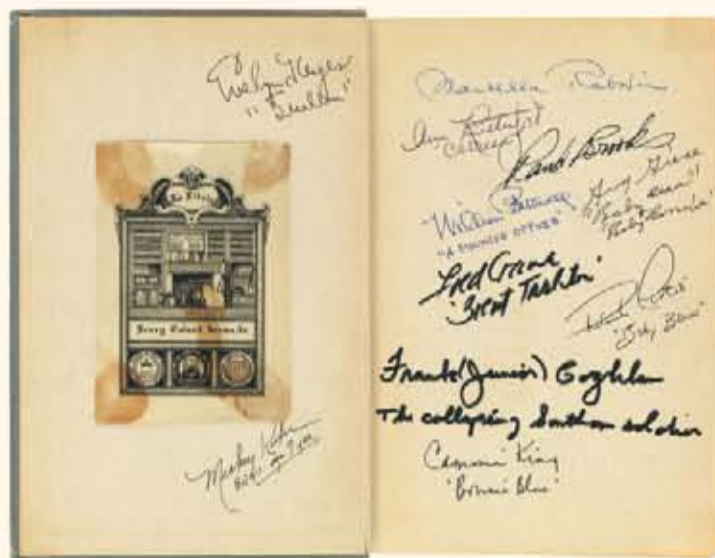 Evelyn Keyes
"Suellen"
Ex Libris
Mickey Kuhn
Marcella Rabwin
Ann Rutherford
Carreen
Rand Brooks
Greg Giese
"Baby Beau"/
"Baby Bonnie"
William Bakewell
"A MOUNTED OFFICER"
Fred Crane
"Brent Tarleton"
Patrick Curtis
"Baby Beau"
Frank (Junior) Coghlan
The collapsing Southern soldier
Cammie King
"Bonnie Blue"